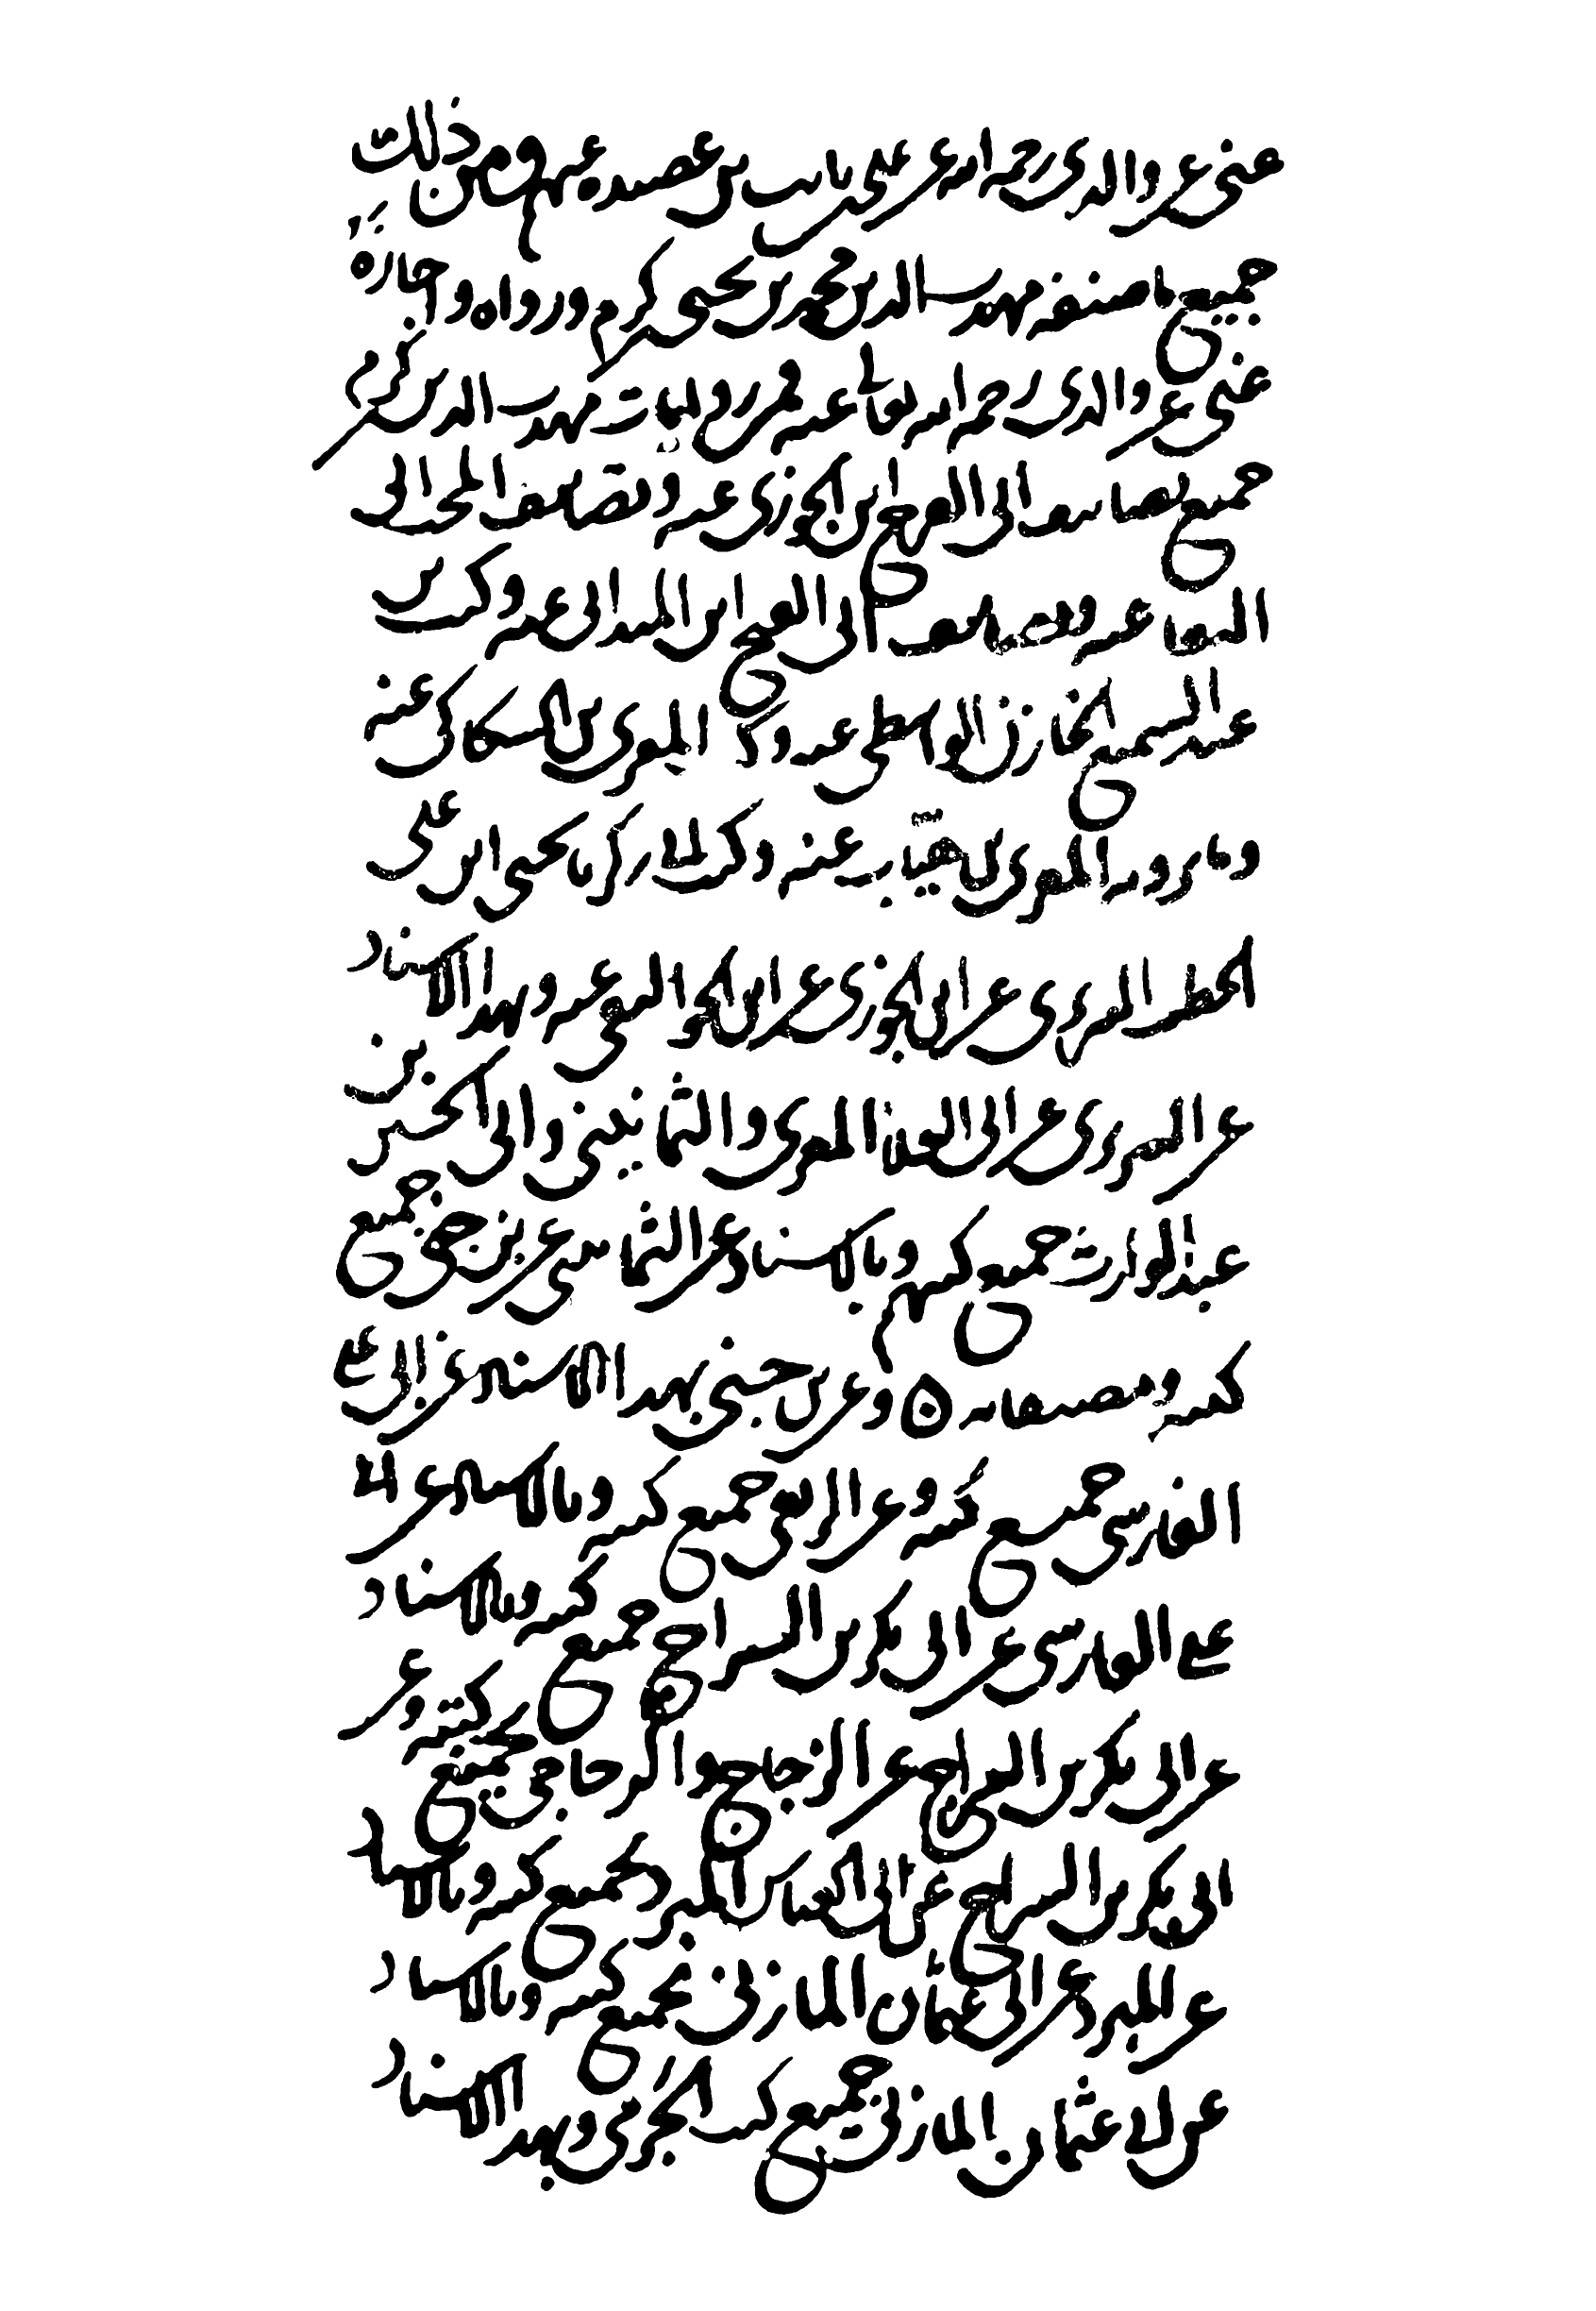 عني عن والدي رحمه الله عن علي بن ثابت بن عصيده عنهما ومن ذلك
جميع ما صنفه مهذب الدين محمد بن يحيى كرم ورواه واجازه
عني عن والدي رحمه الله تعالى عنه فمن روايات مهذب الدين بن كرم
جميع تصانيف ابي الفرج ابن الجوزي عنه وتصانيف
البقا عنه وتصانيف ابي الفتح ابن عنه وكتب بن
عبد السميع الخازن الواسطي عنه وكذا المقري بن السكاكي عنه
وما يرويه المقري بن عنه وكتب ابي زكريا يحيى ابن علي
الخطيب التبريزي عن ابن الجوزي عن ابن الجواليقي عنه وبهذا الاسناد
عن التبريزي عن ابي العلا المعري والثمانيني وابي الحسين بن
عبد الوارث جميع كتبهم وبالاسناد عن الثمانيني عن بن جني جميع
كتبه ومصنفاته ٥ وعن بن جني بهذا الاسناد عن ابي علي
الفارسي جميع كتبه وعن الربعي جميع كتبه وبالاسناد عن ابي
علي الفارسي عن ابي بكر بن السراج جميع كتبه وبالاسناد
عن ابي بكر بن السراج عن الزجاج والزجاجي جميع كتبه وعن
ابي بكر بن السراج عن ابي العباس المبرد بجميع كتبه وبالاسناد
عن المبرد عن ابي عثمان المازني بجميع كتبه وبالاسناد
عن ابي عثمان المازني جميع كتب الجرمي وبهذا الاسناد